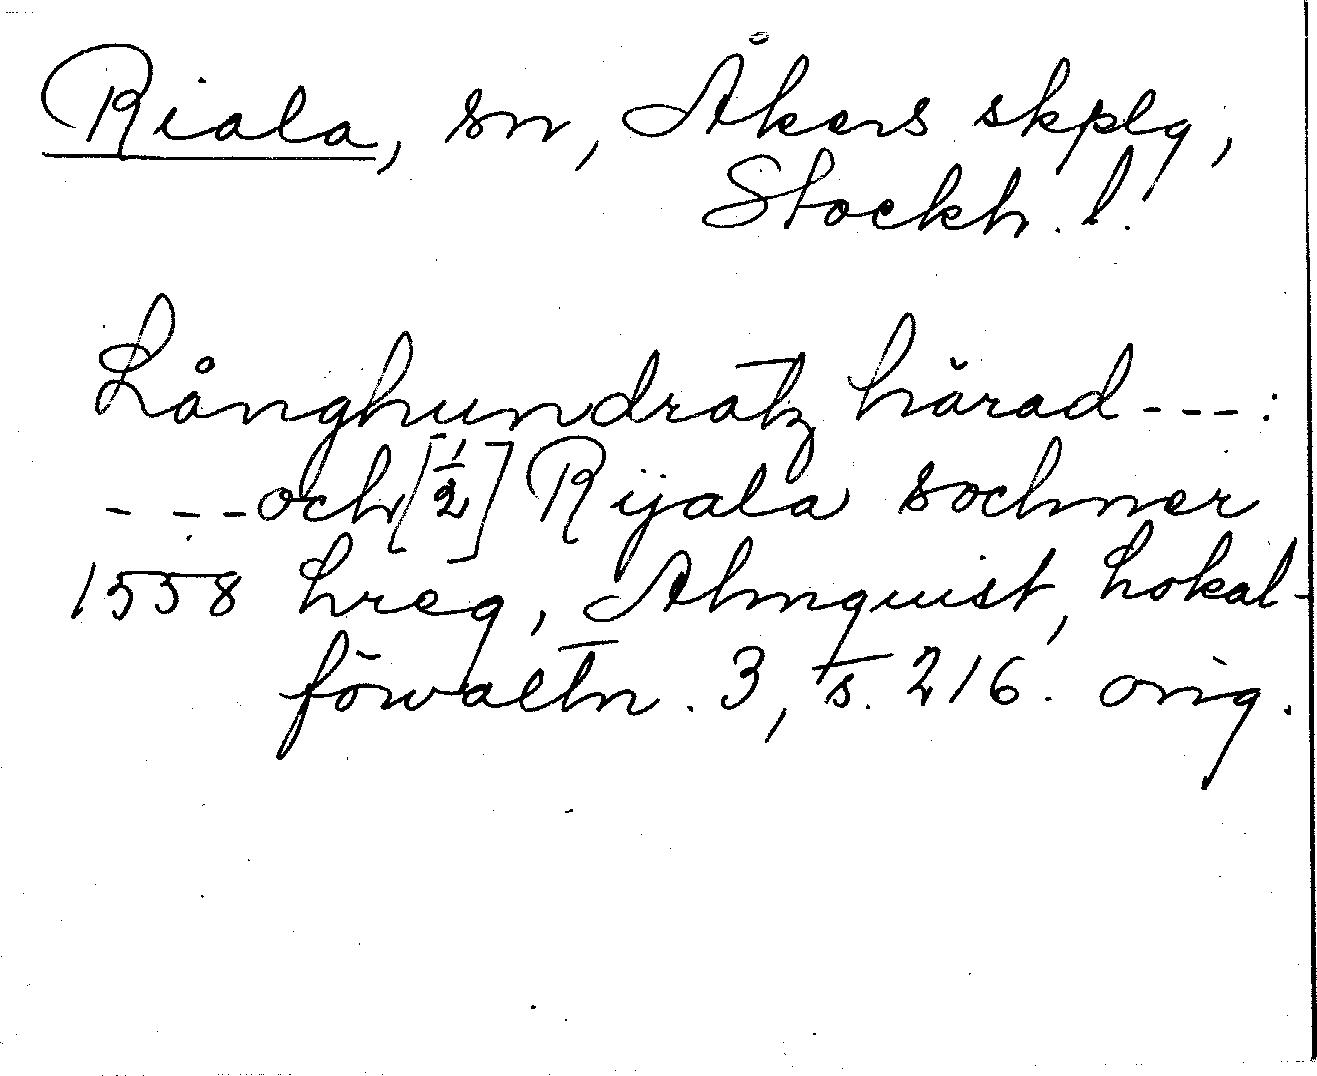 Riala, sn, Åkers skplg,
Stockh. l.
Långhundratz härad ---:
- --- och [1/2] Rijala sochner
1558 Lreg, Almquist, Lokal-
förvaltn. 3, s. 216. orig.